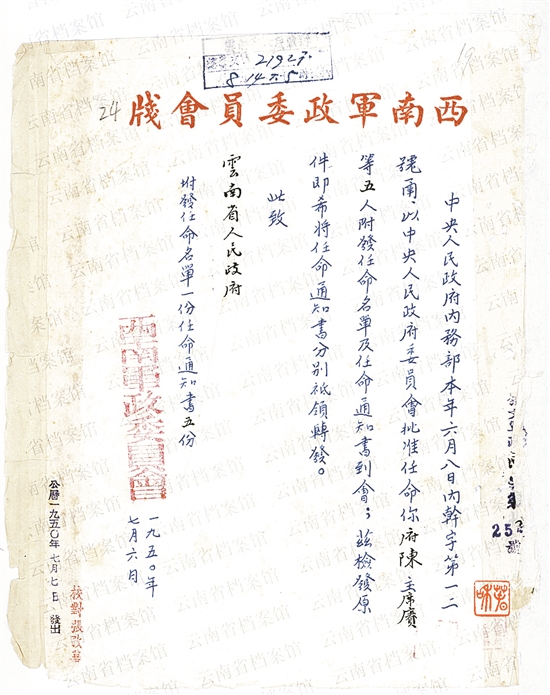 21927
8 14
24
西南軍政委員會牋
中央人民政府內務部本年六月八日內幹字第一二
號函、以中央人民政府委員會批准任命你府陳主席賡
等五人附發任命名單及任命通知書到會；茲檢發原
件即希將任命通知書分別祗領轉發。
此致
雲南省人民政府
坿發任命名單一份任命通知書五份
西南軍政委員會
一九五〇年
七月六日
公曆一九五〇年七月七日發出
校對張
252
云南省档案馆